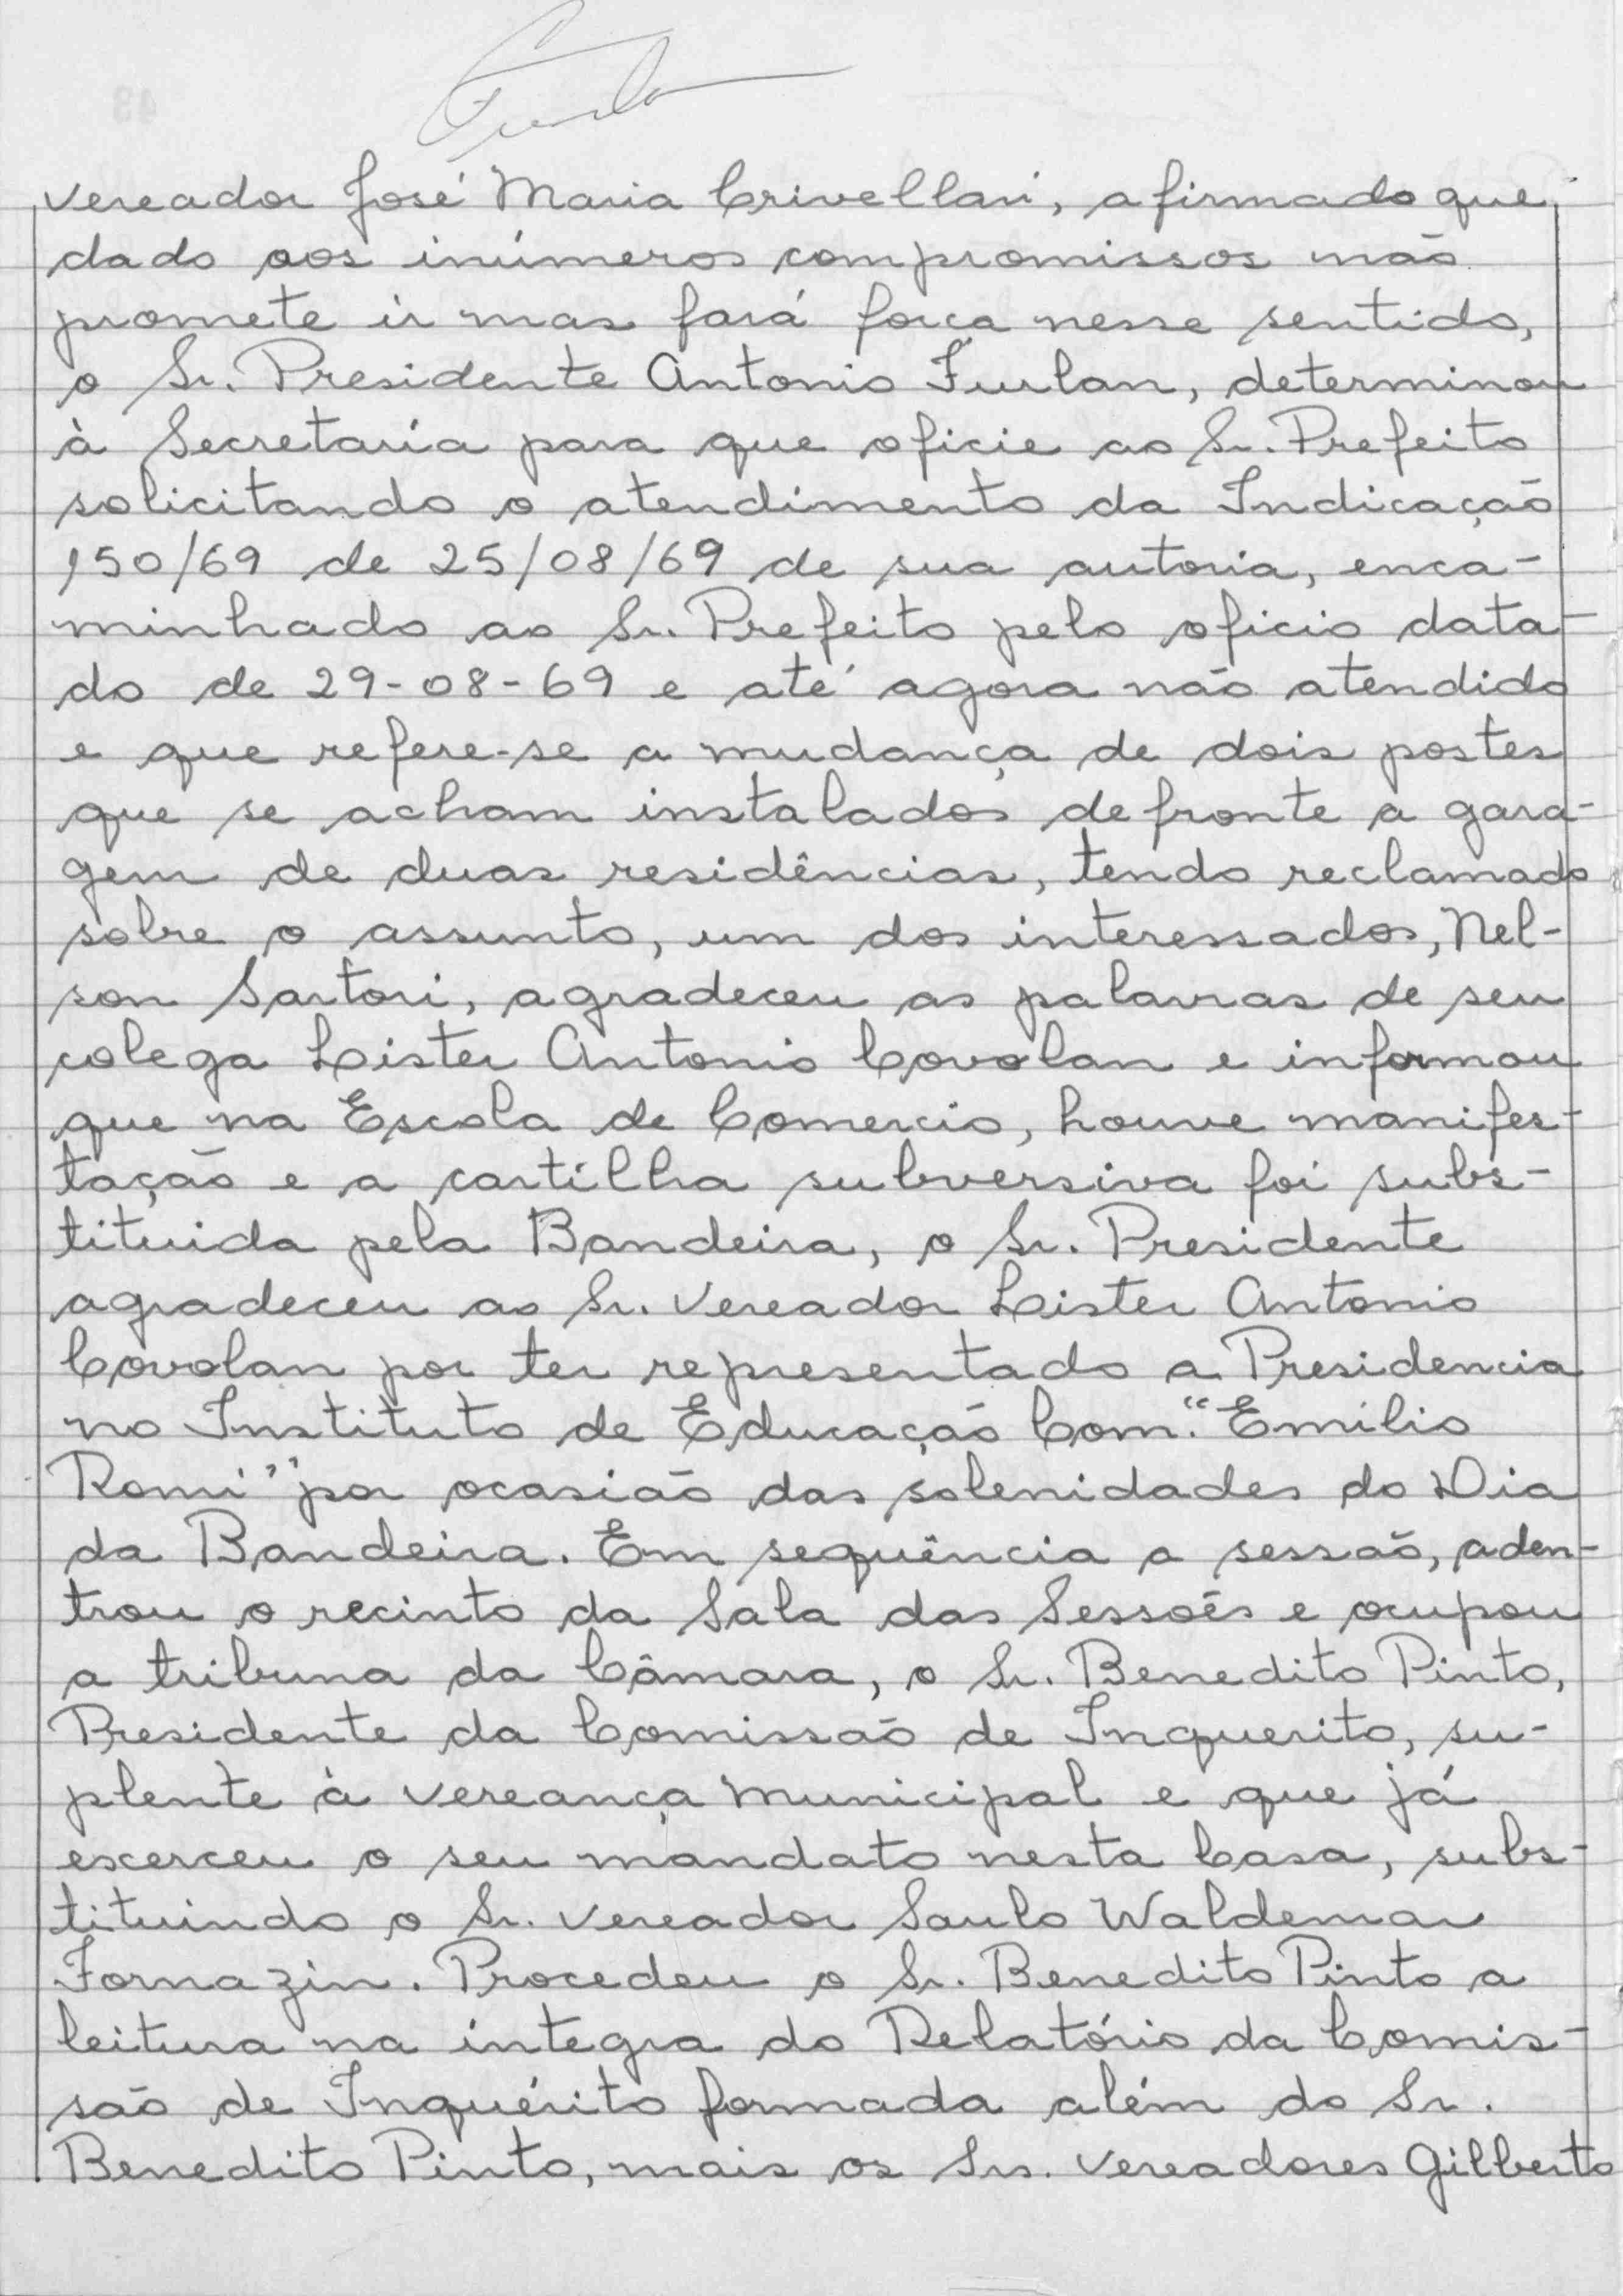 vereador José Maria Crivellari, afirmado que,
dado aos inúmeros compromissos não
promete ir mas fará força nesse sentido,
o Sr. Presidente Antonio Furlan, determinou
à Secretaria para que oficie ao Sr. Prefeito
solicitando o atendimento da Indicação
150/69 de 25/08/69 de sua autoria, enca-
minhado ao Sr. Prefeito pelo oficio data-
do de 29-08-69 e até agora não atendido
e que refere-se a mudança de dois postes
que se acham instalados defronte a gara-
gem de duas residências, tendo reclamado
sobre o assunto, um dos interessados, Nel-
son Sartori, agradeceu as palavras de seu
colega Lister Antonio Covolan e informou
que na Escola de Comercio, houve manifes-
tação e a cartilha subversiva foi subs-
tituida pela Bandeira, o Sr. Presidente
agradeceu ao Sr. Vereador Lister Antonio
Covolan por ter representado a Presidencia
no Instituto de Educação Com. "Emílio
Romi" por ocasião das solenidades do Dia
da Bandeira. Em sequência a sessão, aden-
trou o recinto da Sala das Sessões e ocupou
a tribuna da Câmara, o Sr. Benedito Pinto,
Presidente da Comissão de Inquerito, su-
plente à vereança Municipal e que já
excerceu o seu mandato nesta Casa, subs-
tituindo o Sr. Vereador Saulo Waldemar
Fornazin. Procedeu o Sr. Benedito Pinto a
leitura na íntegra do Relatório da Comis-
são de Inquérito formada além do Sr.
Benedito Pinto, mais os Srs. Vereadores Gilberto